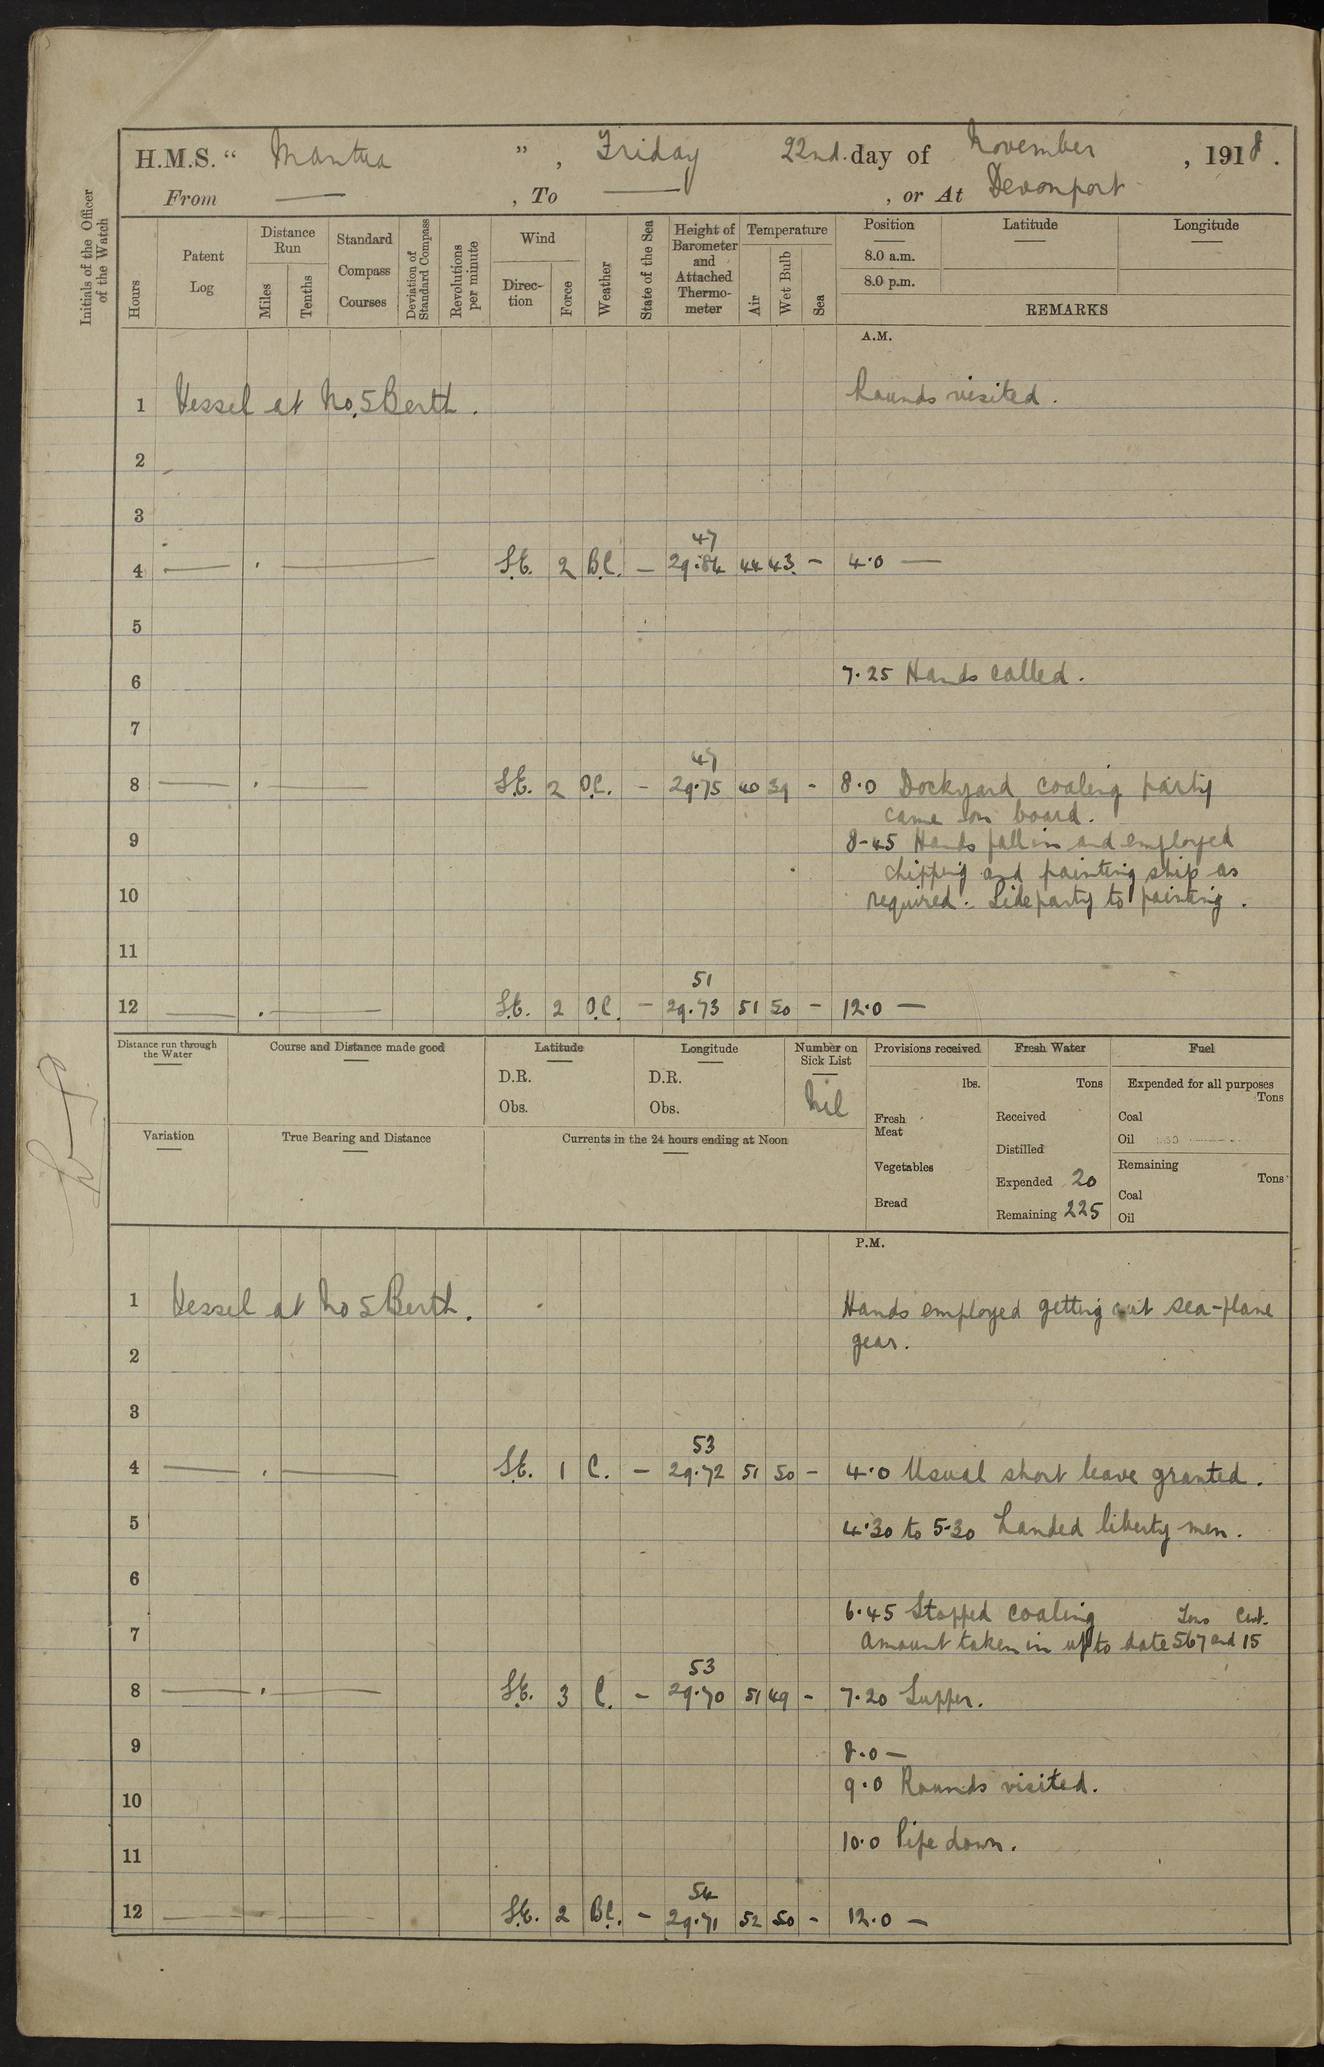 H.M.S. "Mantua", Friday 22nd day of November, 1918.
From —, To —, or At Devonport
Initials of the Officer of the Watch
Hours
Patent Log
Distance Run
Miles
Tenths
Standard Compass Courses
Deviation of Standard Compass
Revolutions per minute
Wind
Direction
Force
Weather
State of the Sea
Height of Barometer and Attached Thermometer
Temperature
Air
Wet Bulb
Sea
Position Latitude Longitude
8.0 a.m.
8.0 p.m.
REMARKS
A.M.
1 Vessel at No. 5 Berth. Rounds visited.
2
3
47
4 — . — S.E. 2 B.C. — 29.84 44 43 — 4.0 —
5
6 7.25 Hands called.
7
47
8 — . — S.E. 2 O.C. — 29.75 40 39 - 8.0 Dockyard coaling party
came on board.
9 8-45 Hands fall in and employed
chipping and painting ship as
10 required. Sideparty to painting.
11
51
12 — . — S.E. 2 O.C. — 29.73 51 50 — 12.0 —
Distance run through the Water
Course and Distance made good
Latitude
D.R.
Obs.
Longitude
D.R.
Obs.
Number on Sick List
Nil
Provisions received
lbs.
Fresh Meat
Vegetables
Bread
Fresh Water
Tons
Received
Distilled
Expended 20
Remaining 225
Fuel
Expended for all purposes
Tons
Coal
Oil
Remaining
Tons
Coal
Oil
Variation
True Bearing and Distance
Currents in the 24 hours ending at Noon
P.M.
1 Vessel at No 5 Berth. Hands employed getting out sea-plane
gear.
2
3
53
4 — . — S.E. 1 C. — 29.72 51 50 — 4.0 Usual short leave granted.
5 4.30 to 5-30 Landed liberty men.
6
6.45 Stopped coaling Tons Cwt.
7 Amount taken in up to date 567 and 15
53
8 — . — S.E. 3 C. — 29.70 51 49 — 7.20 Supper.
9 8.0 —
9.0 Rounds visited.
10
11 10.0 Pipe down.
54
12 — — S.E. 2 B.C. — 29.71 52 50 — 12.0 —